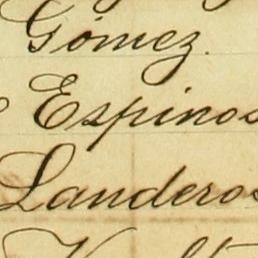 Gómez.
Espinos
Landeros